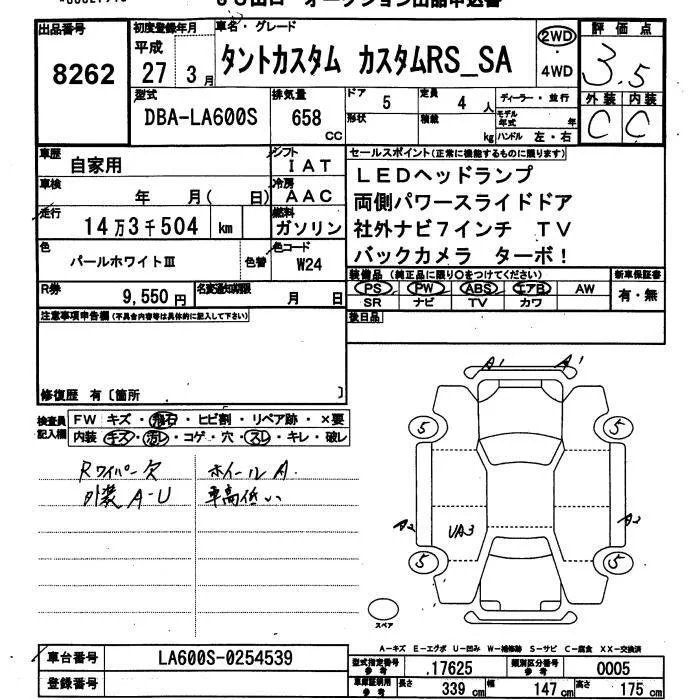 出品番号
8262
初度登録年月
平成
27 3月
車名・グレード
タントカスタム カスタムRS_SA
2WD
・
4WD
評価点
3.5
外装 内装
C C
型式
DBA-LA600S
排気量
658 cc
ドア 5
定員 4 人
形状
積載 kg
ディーラー・並行
モデル年式 年
ハンドル 左・右
車歴
自家用
シフト
IAT
車検
年 月( 日)
冷房
AAC
走行
14万3千504 km
燃料
ガソリン
色
パールホワイトⅢ
色替
色コード
W24
R券
9,550円
名変通知期限
月 日
セールスポイント(正常に機能するものに限ります)
LEDヘッドランプ
両側パワースライドドア
社外ナビ7インチ TV
バックカメラ ターボ!
装備品 (純正品に限り○をつけてください)
PS PW ABS エアB AW
SR ナビ TV カワ
新車保証書
有・無
後日品
注意事項申告欄(不具合内容等は具体的に記入して下さい)
修復歴 有〔箇所 〕
検査員
記入欄
FW キズ・飛石・ヒビ割・リペア跡・×要
内装 キズ・汚レ・コゲ・穴・スレ・キレ・破レ
Rワイパー欠
外装A-U
ホイールA.
車高低い
A1 A1
5 5
A2 UA3 A2
5 5
スペア
A-キズ E-エクボ U-凹み W-補修跡 S-サビ C-腐食 XX-交換済
車台番号 LA600S-0254539
登録番号
型式指定番号 参考 .17625
類別区分番号 参考 0005
車庫証明用 参考
長さ 339cm 幅 147cm 高さ 175cm